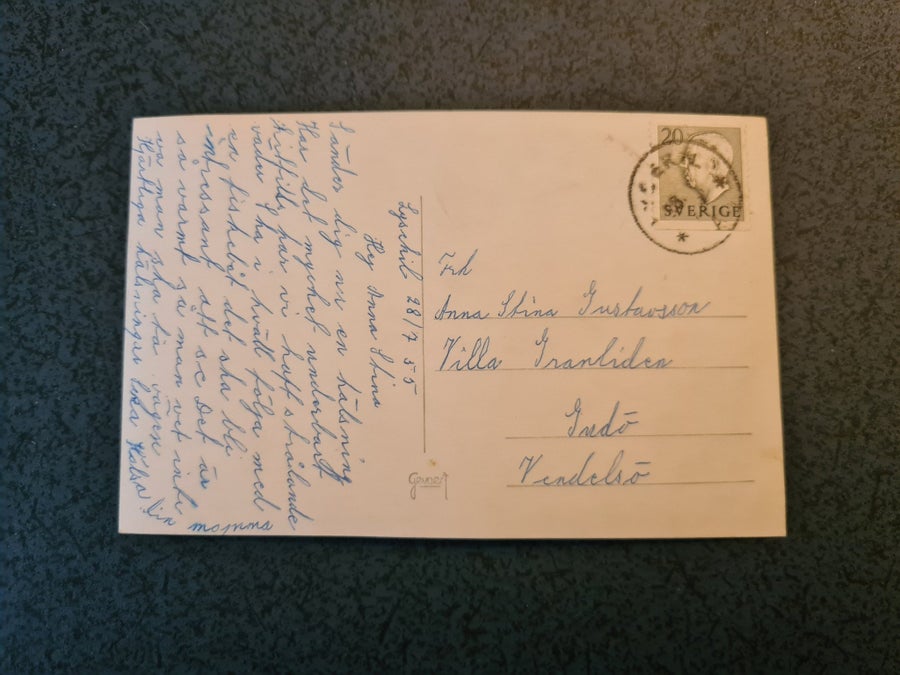 Lysekil 28/7 55
Hej Anna Stina
Sänder dig nu en hälsning
Här det mycket underbart
hittills har vi haft strålande
väder ska i kväll följa med
en fiskebåt det ska bli
intressant att se Det är
så varmt så man vet inte
va man ska ta vägen
Hjärtliga hälsningar
Hälsa din
mamma
20
SVERIGE
Frk
Anna Stina Gustavsson
Villa Granliden
Gudö
Vendelsö